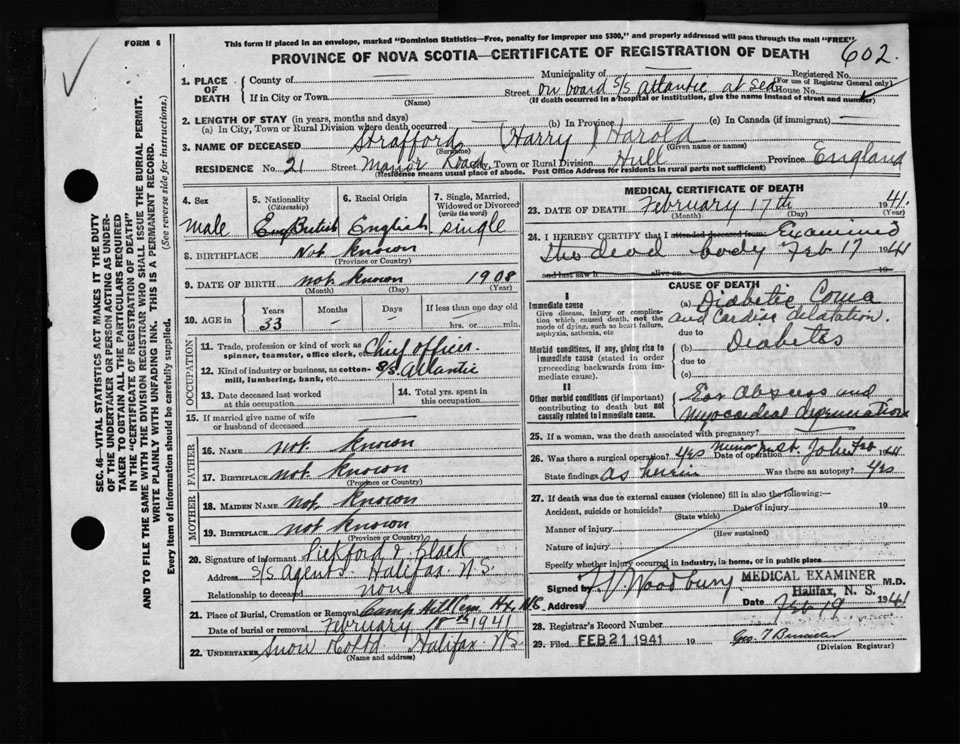 FORM 6
This form if placed in an envelope, marked "Dominion Statistics—Free, penalty for improper use $300," and properly addressed will pass through the mail "FREE"
PROVINCE OF NOVA SCOTIA—CERTIFICATE OF REGISTRATION OF DEATH
602.
1. PLACE OF DEATH
County of
Municipality of
Registered No.
(For use of Registrar General only)
If in City or Town
(Name)
Street on board s/s Atlantic at sea House No.
(If death occurred in a hospital or institution, give the name instead of street and number)
2. LENGTH OF STAY (in years, months and days)
(a) In City, Town or Rural Division where death occurred (b) In Province (c) In Canada (if immigrant)
3. NAME OF DECEASED Strafford (Harry) Harold
(Surname) (Given name or names)
RESIDENCE No. 21 Street Manor Road City, Town or Rural Division Hull Province England
(Residence means usual place of abode. Post Office Address for residents in rural parts not sufficient)
4. Sex
male
5. Nationality
(Citizenship)
British
6. Racial Origin
English
7. Single, Married, Widowed or Divorced
(write the word)
single
8. BIRTHPLACE Not known
(Province or Country)
9. DATE OF BIRTH not known 1908
(Month) (Day) (Year)
10. AGE in
Years Months Days If less than one day old
33 — — hrs. or min.
OCCUPATION
11. Trade, profession or kind of work as spinner, teamster, office clerk, etc. Chief officer.
12. Kind of industry or business, as cotton-mill, lumbering, bank, etc. s/s Atlantic
13. Date deceased last worked at this occupation
14. Total yrs. spent in this occupation
15. If married give name of wife or husband of deceased
FATHER
16. NAME not known
17. BIRTHPLACE not known
(Province or Country)
MOTHER
18. MAIDEN NAME not known
19. BIRTHPLACE not known
(Province or Country)
20. Signature of informant Pickford & Black
Address s/s Agents. Halifax. N.S.
Relationship to deceased none
21. Place of Burial, Cremation or Removal Camp Hill Cem Hx, N.S.
Date of burial or removal February 18th 1941
22. UNDERTAKER Snow Co Ltd Halifax. N.S.
(Name and address)
MEDICAL CERTIFICATE OF DEATH
23. DATE OF DEATH February 17th 1941.
(Month) (Day) (Year)
24. I HEREBY CERTIFY that I attended deceased from Examined
the dead body Feb 17 1941
and last saw h alive on 19
CAUSE OF DEATH
I
Immediate cause
Give disease, injury or complication which caused death, not the mode of dying, such as heart failure, asphyxia, asthenia, etc
(a) Diabetic Coma
and Cardiac dilatation.
due to
Morbid conditions, if any, giving rise to immediate cause (stated in order proceeding backwards from immediate cause).
(b) Diabetes
due to
(c)
II
Other morbid conditions (if important) contributing to death but not causally related to immediate cause.
Ear Abscess and
Myocardial degeneration
25. If a woman, was the death associated with pregnancy?
26. Was there a surgical operation? yes minor in St. John Feb
Date of operation 1941
State findings as herein Was there an autopsy? yes
27. If death was due to external causes (violence) fill in also the following:—
Accident, suicide or homicide? Date of injury 19
(State which)
Manner of injury
(How sustained)
Nature of injury
Specify whether injury occurred in industry, in home, or in public place
Signed by Woodbury MEDICAL EXAMINER M.D.
Halifax, N. S.
Address Date Feb 19 1941
28. Registrar's Record Number
29. Filed FEB 21 1941 19
(Division Registrar)
SEC. 46—VITAL STATISTICS ACT MAKES IT THE DUTY
OF THE UNDERTAKER OR PERSON ACTING AS UNDER-
TAKER TO OBTAIN ALL THE PARTICULARS REQUIRED
IN THE "CERTIFICATE OF REGISTRATION OF DEATH"
AND TO FILE THE SAME WITH THE DIVISION REGISTRAR WHO SHALL ISSUE THE BURIAL PERMIT.
WRITE PLAINLY WITH UNFADING INK. THIS IS A PERMANENT RECORD.
Every item of information should be carefully supplied. (See reverse side for instructions.)